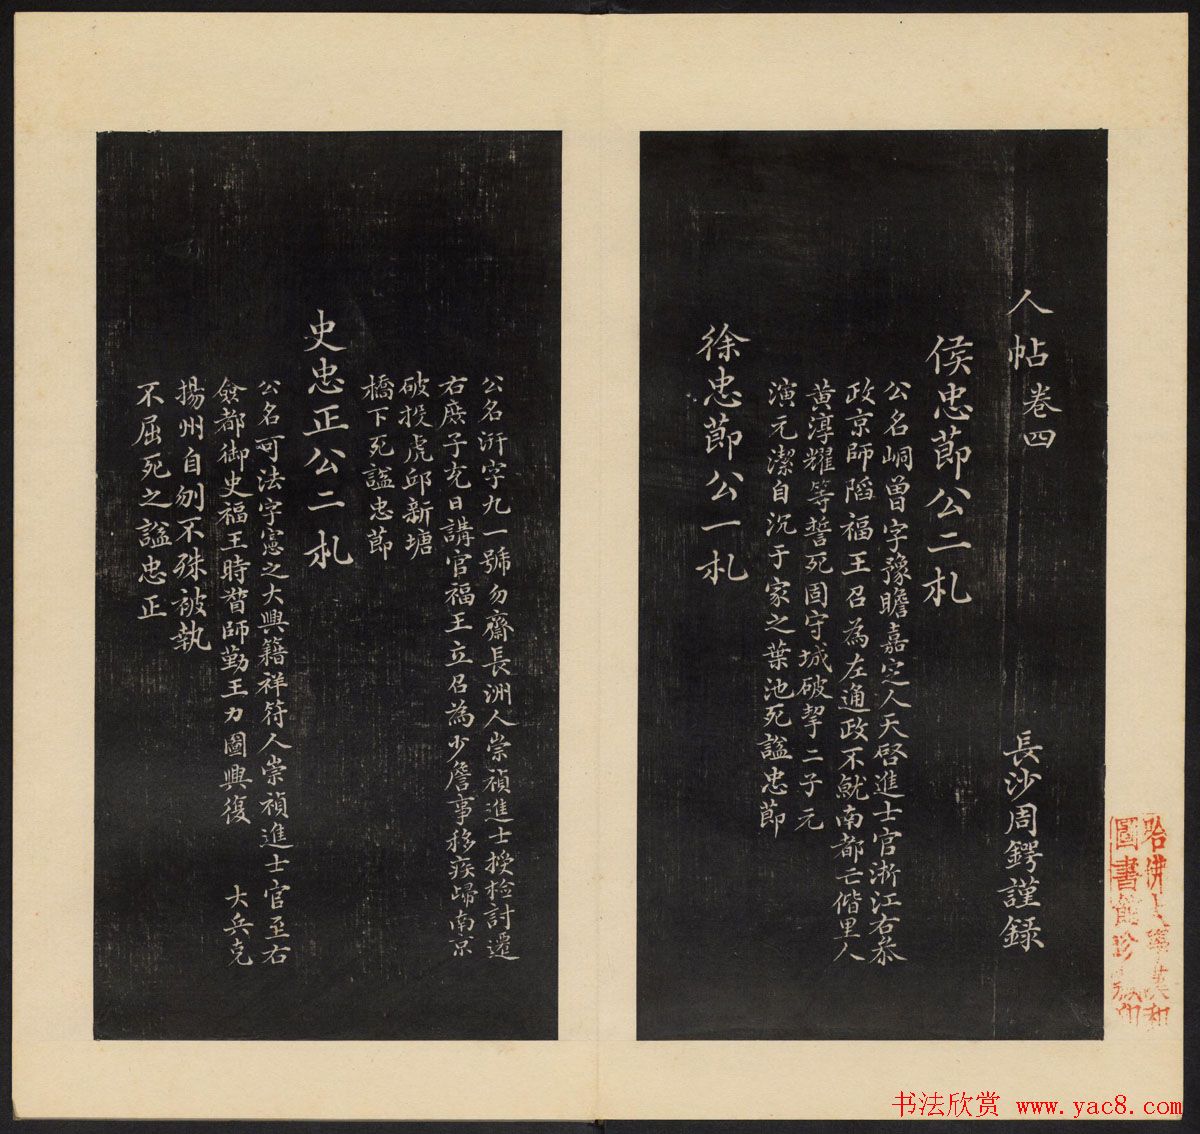 人帖卷四 長沙周鍔謹録
侯忠節公二札
公名峒曽字豫瞻嘉定人天啓進士官浙江右叅
政京師陷福王召為左通政不就南都亡偕里人
黄淳耀等誓死固守城破挈二子元
演元潔自沉于家之葉池死謚忠節
徐忠節公一札
公名汧字九一號勿齋長洲人崇禎進士授檢討遷
右庶子充日講官福王立召為少詹事移疾歸南京
破投虎邱新塘
橋下死謚忠節
史忠正公二札
公名可法字憲之大興籍祥符人崇禎進士官至右
僉都御史福王時督師勤王力圖興復 大兵克
揚州自刎不殊被執
不屈死之謚忠正
哈佛大學漢和
圖書館珍藏印
书法欣赏 www.yac8.com